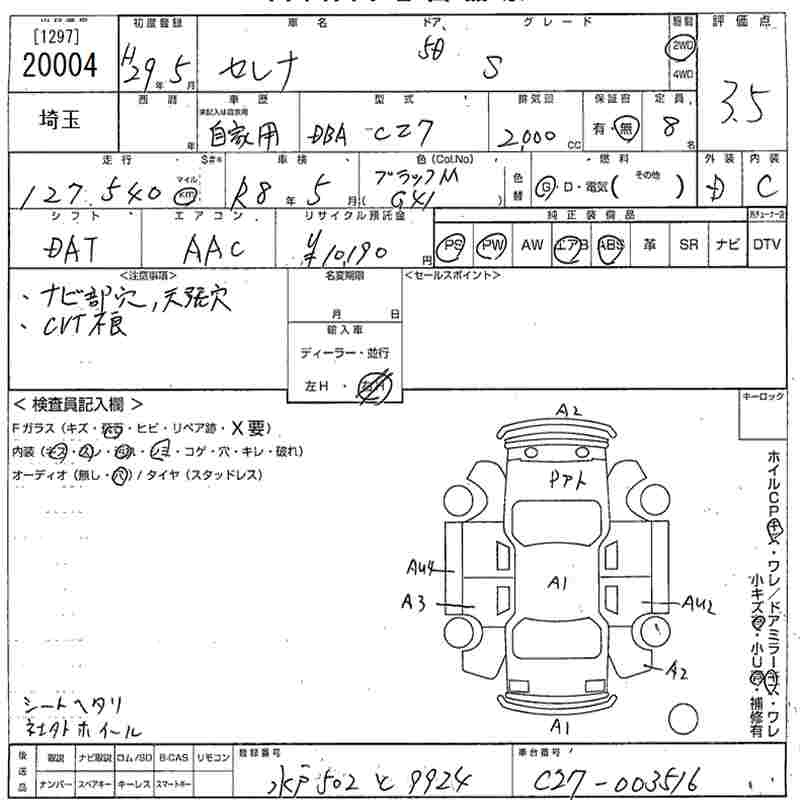 [1297]
20004
初度登録 車名 ドア グレード 評価点
H29年5月 セレナ 5D S 2WD 4WD 3.5
埼玉
西暦 車歴 型式 排気量 保証書 定員
年 自家用 DBA-C27 2,000 CC 有・無 8名
走行 S#* 車検 色(Col.No) 色替 燃料 外装 内装
127,540 マイル km R8年5月 ブラックM (G41) G・D・電気( その他 ) D C
シフト エアコン リサイクル預託金 純正装備品
DAT AAC ¥10,190円 PS PW AW エアB ABS 革 SR ナビ DTV
<注意事項> 名変期限 <セールスポイント>
・ナビ部穴,天張穴
・CVT不良
月 日
輸入車
ディーラー・並行
左H・右H
< 検査員記入欄 > キーロック
Fガラス(キズ・飛石・ヒビ・リペア跡・X要)
内装(キズ・スレ・汚れ・シミ・コゲ・穴・キレ・破れ)
オーディオ(無し・穴)/タイヤ(スタッドレス)
A2
Pアト
AU4
A1
A3
AU2
A2
A1
ホイルCPキズ・ワレ/ドアミラーキズ・ワレ
小キズ・小U・補修有
シートヘタリ
社外ホイール
後送品 取説 ナビ取説 ロム/SD B-CAS リモコン 登録番号 車台番号
ナンバー スペアキー キーレス スマートキー 水戸502と9924 C27-003516